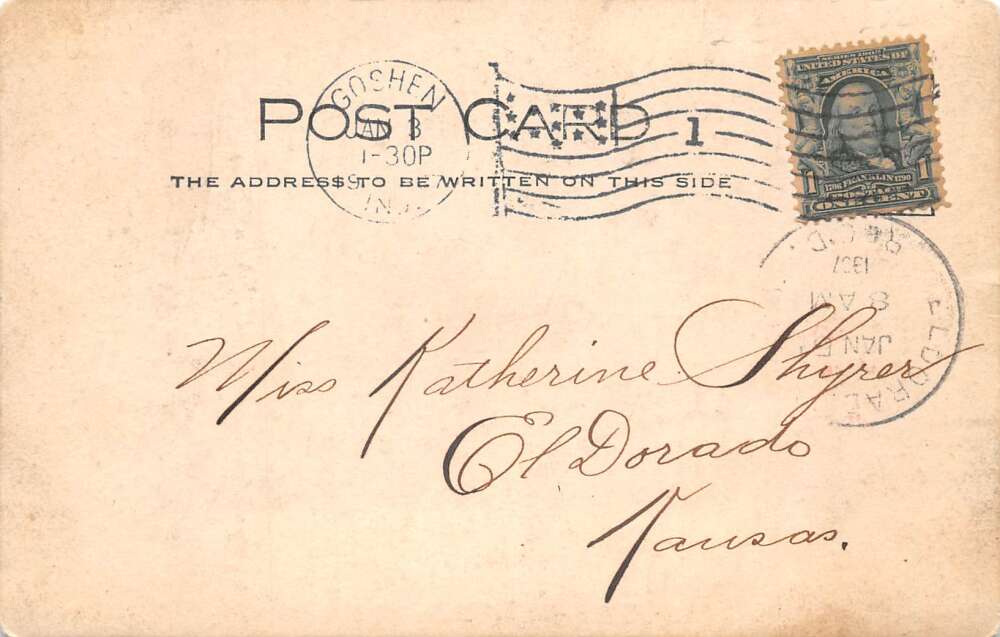 SERIES 1902
UNITED STATES OF
AMERICA
1 1
1706 FRANKLIN 1790
POSTAGE
ONE CENT
GOSHEN
JAN 3
1-30P
IND.
POST CARD
1
THE ADDRESS TO BE WRITTEN ON THIS SIDE
REC'D.
1907
8 AM
JAN 5
Miss Katherine Shyrer
El Dorado
Kansas.